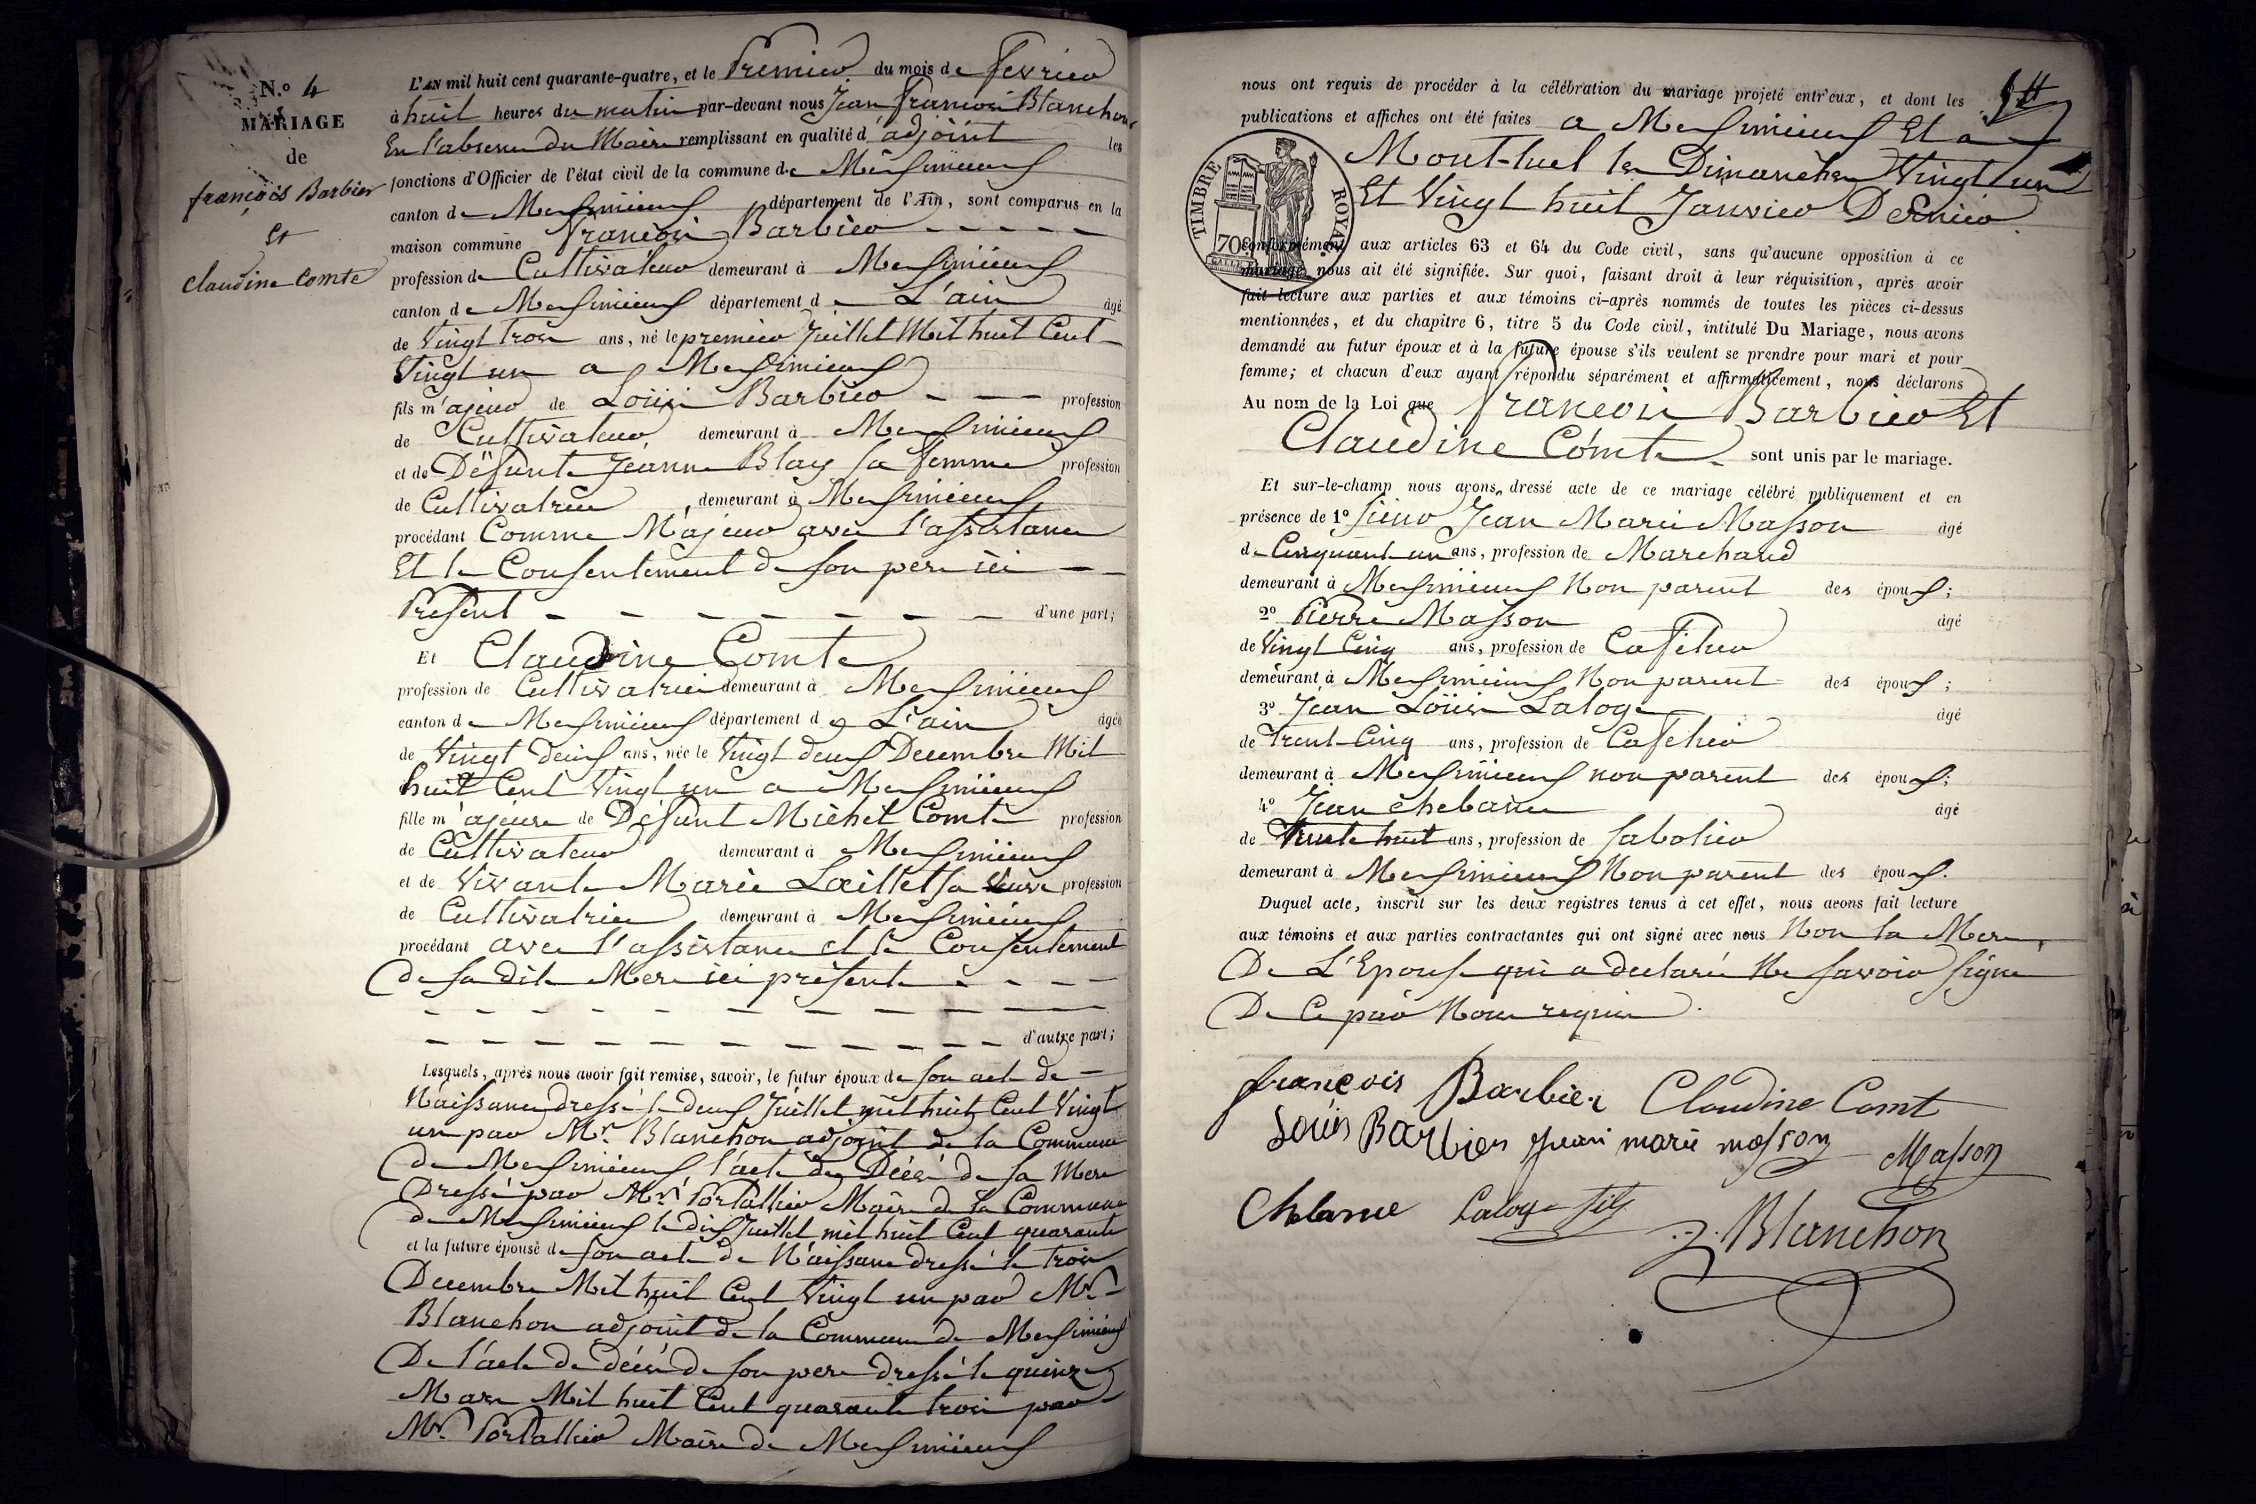 N.º 4
MARIAGE
de
françois Barbier
Et
Claudine Comte
L'AN mil huit cent quarante-quatre, et le Premier du mois de fevrier
à huit heures du matin par-devant nous Jean François Blanchon
En l'absence du Maire remplissant en qualité d'adjoint les
fonctions d'Officier de l'état civil de la commune de Messimieux
canton de Messimieux département de l'Ain, sont comparus en la
maison commune François Barbier
profession de Cultivateur demeurant à Messimieux
canton de Messimieux département de L'ain âgé
de Vingt trois ans, né le premier Juillet Mil huit Cent
Vingt un a Messimieux
fils majeur de Loüis Barbier profession
de Cultivateur demeurant à Messimieux
et de Défunte Jeanne Blay sa femme profession
de Cultivatrice demeurant à Messimieux
procédant Comme Majeur avec l'assistance
Et le Consentement de son pere ici
Présent d'une part;
Et Claudine Comte
profession de Cultivatrice demeurant à Messimieux
canton de Messimieux département de L'ain âgée
de Vingt deux ans, née le Vingt deux Decembre Mil
huit Cent Vingt un a Messimieux
fille majeure de Défunt Michel Comte profession
de Cultivateur demeurant à Messimieux
et de Vivante Marie Laillet sa Veuve profession
de Cultivatrice demeurant à Messimieux
procédant avec l'assistance et le Consentement
de sa dite Mere ici présente
d'autre part;
Lesquels, après nous avoir fait remise, savoir, le futur époux de son acte de
Naissance dressé le deux Juillet mil huit Cent Vingt
un par Mr. Blanchon adjoint de la Commune
de Messimieux l'acte de Décès de sa Mere
Dressé par Mr. Portallier Maire de la Commune
de Messimieux le dix Juillet mil huit Cent quarante
et la future épouse de son acte de Naissance dressé le trois
Decembre Mil huit Cent Vingt un par Mr.
Blanchon adjoint de la Commune de Messimieux
De l'acte de décès de son pere dressé le quinze
Mars Mil huit Cent quarante trois par
Mr. Portallier Maire de Messimieux
nous ont requis de procéder à la célébration du mariage projeté entr'eux, et dont les
publications et affiches ont été faites a Messimieux Et à
Mont-luel les Dimanches Vingt un
Et Vingt huit Janvier Dernier
TIMBRE ROYAL
70c
conformément aux articles 63 et 64 du Code civil, sans qu'aucune opposition à ce
mariage nous ait été signifiée. Sur quoi, faisant droit à leur réquisition, après avoir
fait lecture aux parties et aux témoins ci-après nommés de toutes les pièces ci-dessus
mentionnées, et du chapitre 6, titre 5 du Code civil, intitulé Du Mariage, nous avons
demandé au futur époux et à la future épouse s'ils veulent se prendre pour mari et pour
femme; et chacun d'eux ayant répondu séparément et affirmativement, nous déclarons
Au nom de la Loi que François Barbier Et
Claudine Comte sont unis par le mariage.
Et sur-le-champ nous avons dressé acte de ce mariage célébré publiquement et en
présence de 1º sieur Jean Marie Masson âgé
de Cinquante un ans, profession de Marchand
demeurant à Messimieux Non parent des époux;
2º Pierre Masson âgé
de Vingt Cinq ans, profession de Cafetier
demeurant à Messimieux Non parent des époux;
3º Jean Loüis Laloge âgé
de Trente Cinq ans, profession de Cafetier
demeurant à Messimieux non parent des époux;
4º Jean Chebance âgé
de Trente huit ans, profession de sabotier
demeurant à Messimieux Non parent des époux.
Duquel acte, inscrit sur les deux registres tenus à cet effet, nous avons fait lecture
aux témoins et aux parties contractantes qui ont signé avec nous Non la Mere
De L'Epouse qui a declaré Ne savoir signé
De Ce par Nous requise
françois Barbier Claudine Comt
Louis Barbier Jean marie masson Masson
Laloge fils
J. Blanchon